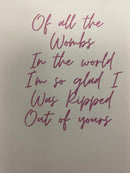 Of all the
Wombs
In the world
I'm so glad I
Was Ripped
Out of yours